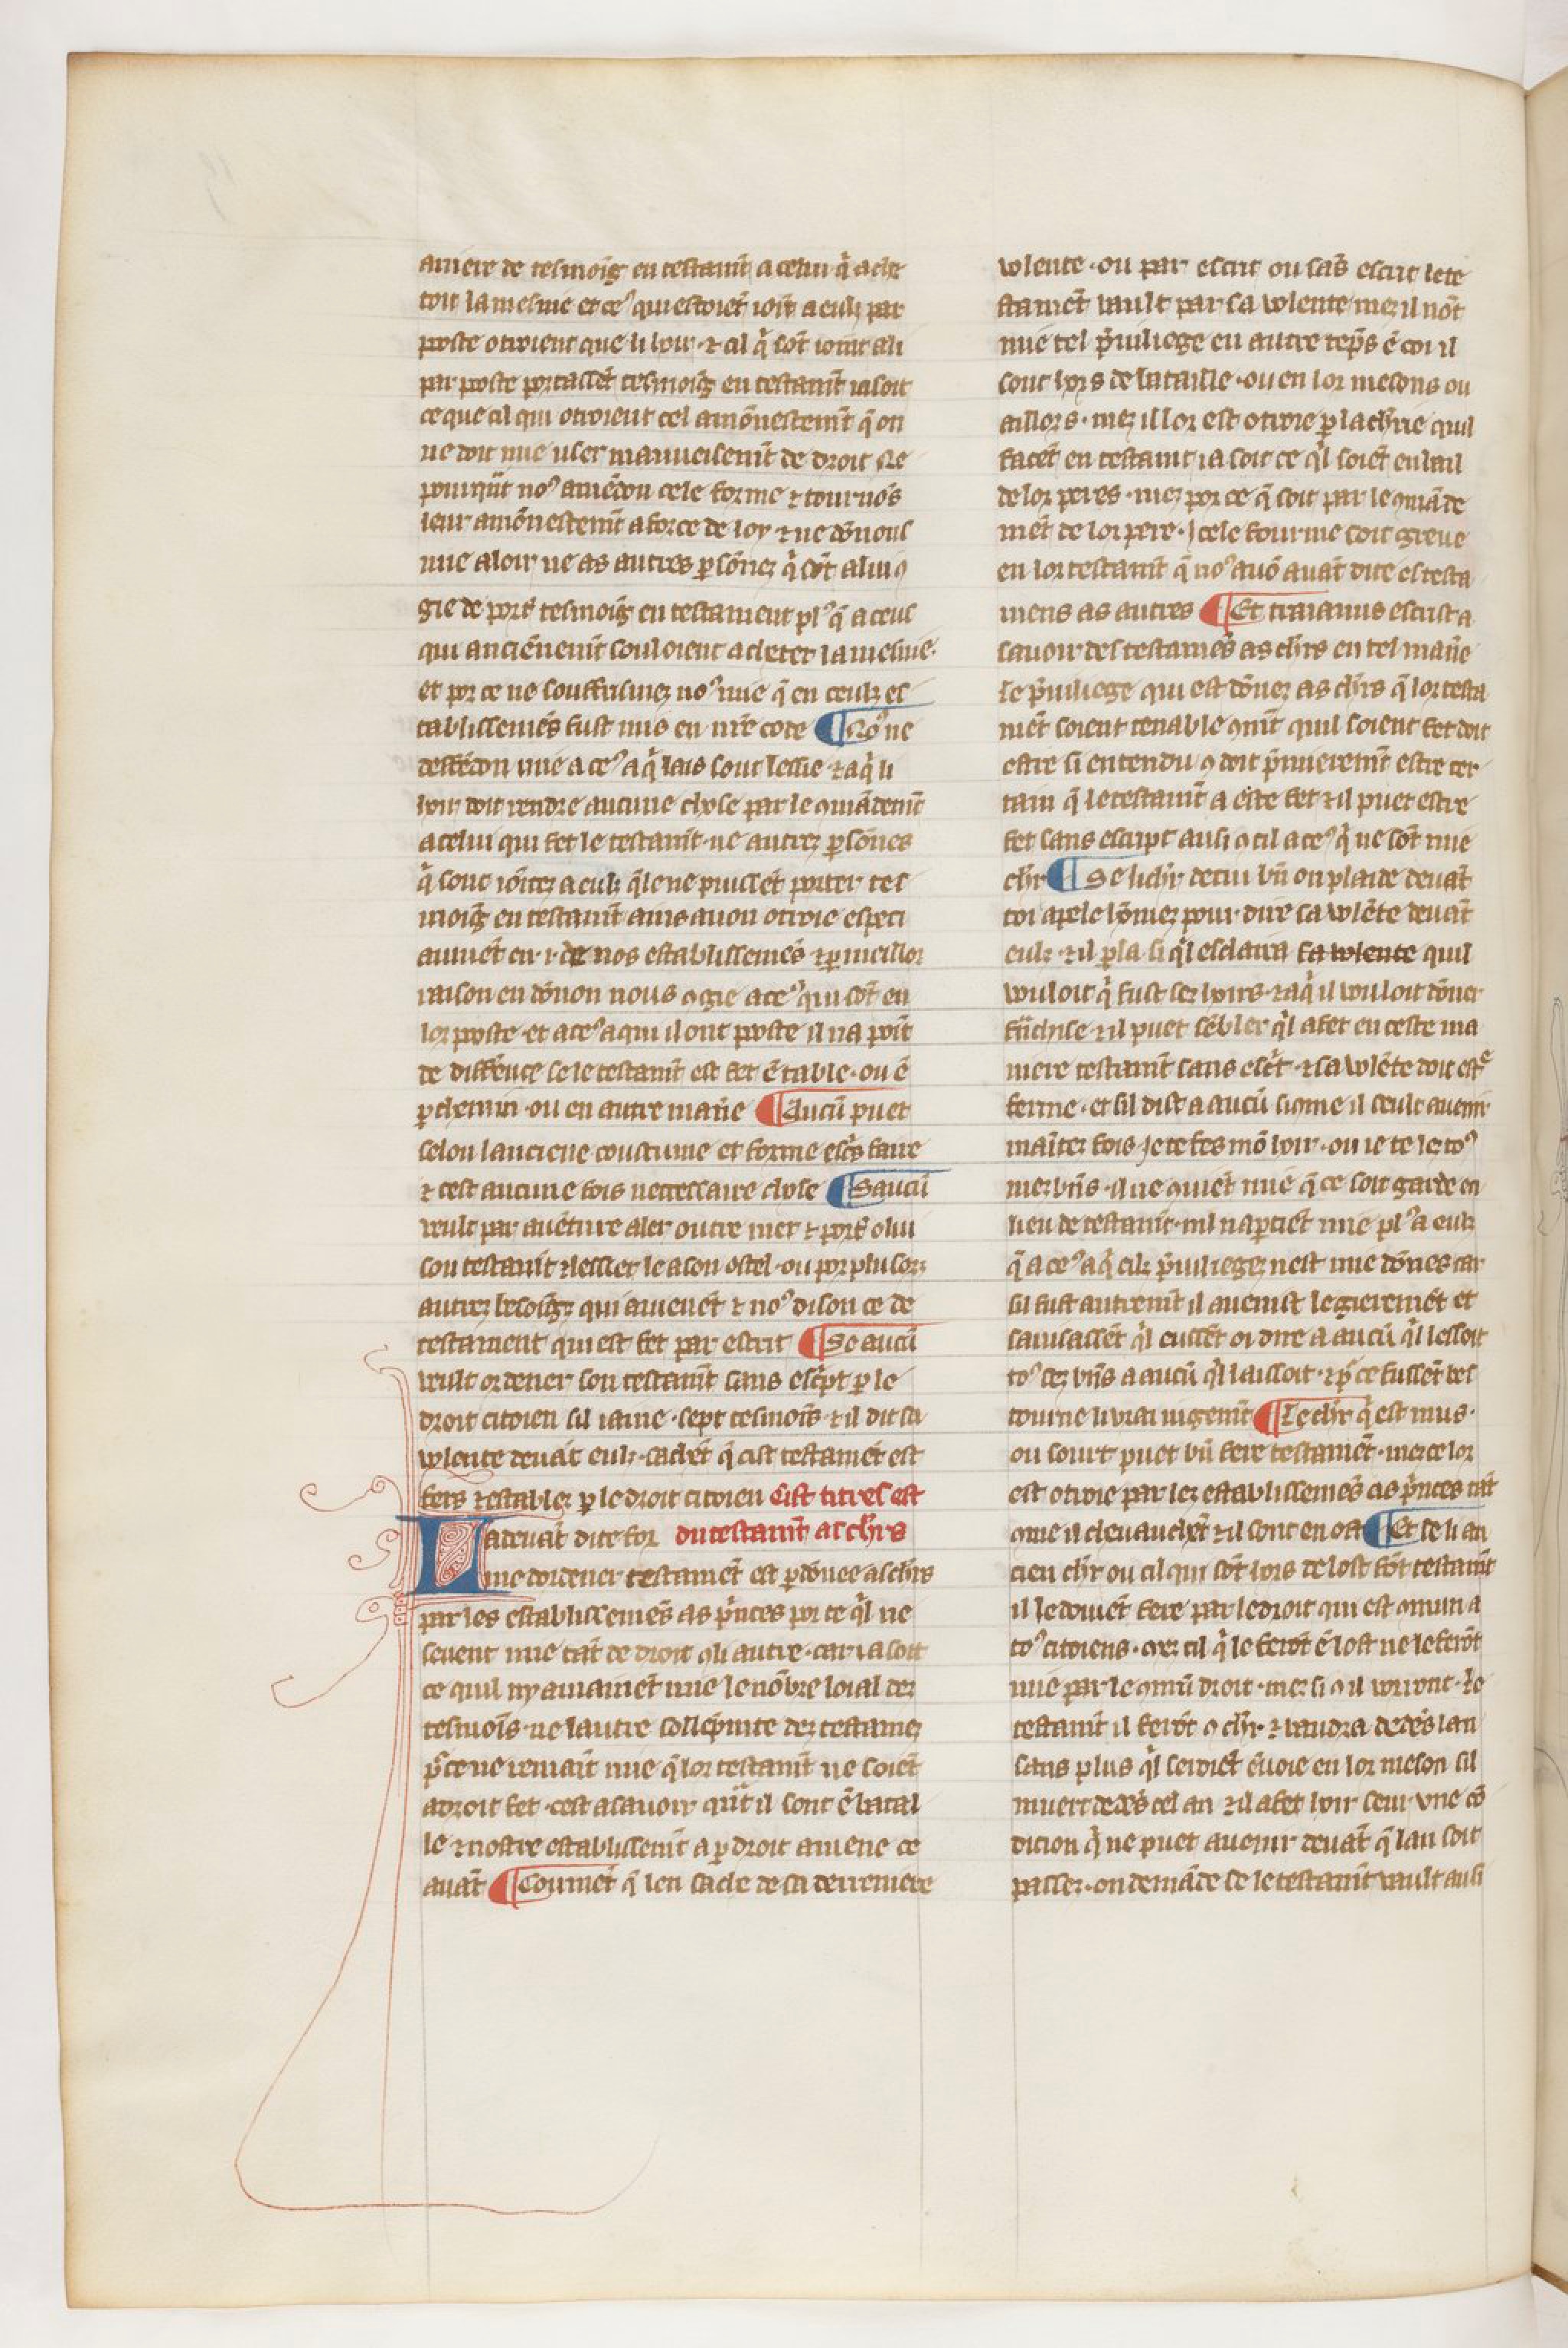 arriere de tesmoīg en testamt̄ a celui q̄ ache
toit la mesnie et ceꝰ qui estoiēt ioīt a eulz par
poste otroient que li hoir ⁊ cil q̄ sōt ioint a li
par poste portassēt tesmoīg en testamt̄ ia soit
ce que cil qui otroient cel amōnestemt̄ q̄ on
ne doit mie user mauueisemt̄ de droit Ne
pourqt̄ noꝰ amēdon cele forme ⁊ tournōs
leur amōnestemt̄ a force de loy ⁊ ne dōnons
mie a loir ne as autres ꝑsōnez q̄ sōt a lui ꝯ
gie de port̄ tesmoīg en testament plꝰ q̄ a ceus
qui anciēnemt̄ souloient acheter la mesnie.
et por ce ne souffrismez noꝰ mie q̄ en ceulz es
tablissemēs fust mis en nr̄e code ¶ Noꝰ ne
deffēdon mie a ceꝰ a q̄ lais sont lessie ⁊ a q̄ li
hoir doit rendre aucune chose par le ꝯmādemt̄
a celui qui fet le testamt̄ ne autrez ꝑsōnes
q̄ sont iōītez a eulz q̄le ne puissēt porter tes
moīg en testamt̄ ains auon otroie especi
aumēt en .i. de nos establissemēs ⁊ ꝑ meillor
raison en dōnon nous ꝯgie a ceꝰ qui sōt en
lor poste et a ceꝰ a qui il ont poste il na poīt
de differēce se le testamt̄ est fet ē table. ou ē
ꝑchemin ou en autre manīe ¶ Aucū puet
selon lanciene coustume et forme escs̄ faire
⁊ cest aucune fois neccessaire chose ¶ Saucū
veult par auēture aler outre mer ⁊ port̄ o lui
son testamt̄ ⁊ lessier le a son ostel. ou por plusorz
autrez besoīgz qui auienēt ⁊ noꝰ dison ce de
testament qui est fet par escrit ¶ Se aucū
veult ordener son testamt̄ sans esc̄pt ꝑ le
droit citoien sil iaine .sept tesmoīs ⁊ il dit sa
volente deuāt eulz. sachēt q̄ cist testamēt est
fers ⁊ establez ꝑ le droit citoien Cist titres est
Ladeuāt dite for du testamt̄ as chr̄s
me dordener testamēt est ꝑdōnee as chr̄s
par les establissemēs as p̄nces por ce q̄l ne
seuent mie tāt de droit ꝯ li autre. car ia soit
ce quil ny amainēt mie le nōbre loial dez
tesmoīs. ne lautre sollēpnite dez testamez
p̄ ce ne remaīt mie q̄ lor testamt̄ ne soiēt
a droit fet .cest a sauoir qt̄ il sont ē batail
le ⁊ nostre establissemt̄ a ꝑ droit amene ce
auāt ¶ Commēt q̄ len sache de sa derreniere
volente .ou par escrit ou sās escrit le te
stamēt vault par sa volente mez il nōt
mie tel p̄uiliege en autre tēps ē coi il
sont hors de bataille. ou en lor mesons ou
aillors. mez il lor est otroie ꝑ la chr̄ie quil
facēt en testamt̄ ia soit ce q̄l soiēt en bail
de lor peres. mez por ce q̄ soit par le ꝯmāde
mēt de lor pere. Icele fourme soit greue
en lor testamt̄ q̄ noꝰ auō auāt dite es testa
mens as autres ¶ Et traianus escrist a
sauoir des testamēs as chr̄s en tel manīe
le p̄uiliege qui est dōnez as chr̄s q̄ lor testa
mēt soient tenable ꝯmt̄ quil soient fet doit
estre si entendu ꝯ doit p̄mieremt̄ estre cer
tain q̄ le testamt̄ a este fet ⁊ il puet estre
fet sans escript ausi ꝯ cil a ceꝰ q̄ ne sōt mie
chr̄ ¶ Se li chr̄ de cui bn̄ on plaide deuāt
toi apele hōmez pour dire sa volēte deuāt
eulz ⁊ il ꝑla si q̄l esclaira sa volente quil
vouloit q̄ fust sez hoirs ⁊ a q̄ il vouloit dōner
frāchise ⁊ il puet sēbler q̄l a fet en ceste ma
niere testamt̄ sans esc̄t ⁊ sa volēte doit estre
ferme. et sil dist a aucū si ꝯme il seult auenir
maītez fois Je te fes mō hoir. ou ie te les toꝰ
mez bn̄s. il ne ꝯuiēt mie q̄ ce soit garde en
lieu de testamt̄. nil naꝑtiēt mie plꝰ a eulz
q̄ a ceꝰ a q̄ cilz p̄uiliegez nest mie dōnes car
sil fust autremt̄ il auenist legieremēt et
sauisassēt q̄l eussēt oi dire a aucū q̄l lessoit
toꝰ sez bn̄s a aucū q̄l laissoit ⁊ p̄ ce fussēt bes
tourne li vrai iugemt̄ ¶ Le chr̄ q̄ est mus.
ou sourt puet bn̄ fere testamēt. mez ce lor
est otroie par lez establissemēs as p̄nces tāt
ꝯme il cheuauchēt ⁊ il sont en ost ¶ Et se li an
cien chr̄ ou cil qui sōt hors de lost fōt testamt̄
il le doiuēt fere par le droit qui est ꝯmun a
toꝰ citoiens. mez cil q̄ le ferōt ē lost ne le ferōt
mie par le ꝯmū droit. mez si ꝯ il vorront. Le
testamt̄ il ferōt ꝯ chr̄ ⁊ vaudra dedēs lan
sans plus q̄l seroiēt ēuoie en lor meson sil
muert dedēs cel an ⁊ il a fet hoir seur vne cō
dicion q̄ ne puet auenir deuāt q̄ lan soit
passez. on demāde se le testamt̄ vault ausi